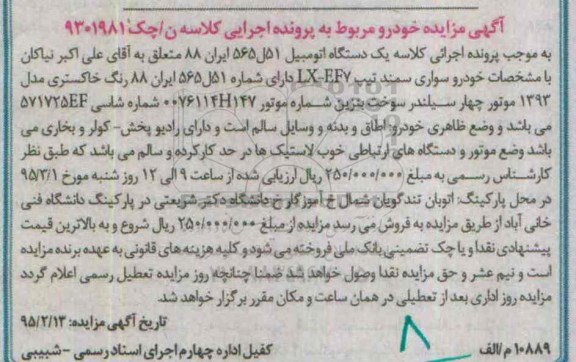 آگهی مزایده خودرو مربوط به پرونده اجرایی کلاسه ن/چک ۹۳۰۱۹۸۱
به موجب پرونده اجرائی کلاسه یک دستگاه اتومبیل ۵۱ل۵۶۵ ایران ۸۸ متعلق به آقای علی اکبر نیاکان
با مشخصات خودرو سواری سمند تیپ LX-EF۷ دارای شماره ۵۱ل۵۶۵ ایران ۸۸ رنگ خاکستری مدل
۱۳۹۳ موتور چهار سیلندر سوخت بنزین شماره موتور ۱۴۷H۰۰۷۶۱۱۴ شماره شاسی ۵۷۱۷۲۵EF
می باشد و وضع ظاهری خودرو: اطاق و بدنه و وسایل سالم است و دارای رادیو پخش- کولر و بخاری می
باشد وضع موتور و دستگاه های ارتباطی خوب لاستیک ها در حد کارکرده و سالم می باشد که طبق نظر
کارشناس رسمی به مبلغ ۲۵۰/۰۰۰/۰۰۰ ریال ارزیابی شده از ساعت ۹ الی ۱۲ روز شنبه مورخ ۹۵/۳/۱
در محل پارکینگ: اتوبان تندگویان شمال خ آموزگار خ دانشگاه دکتر شریعتی در پارکینگ دانشگاه فنی
خانی آباد از طریق مزایده به فروش می رسد مزایده از مبلغ ۲۵۰/۰۰۰/۰۰۰ ریال شروع و به بالاترین قیمت
پیشنهادی نقدا و یا چک تضمینی بانک ملی فروخته می شود و کلیه هزینه های قانونی به عهده برنده مزایده
است و نیم عشر و حق مزایده نقدا وصول خواهد شد ضمنا چنانچه روز مزایده تعطیل رسمی اعلام گردد
مزایده روز اداری بعد از تعطیلی در همان ساعت و مکان مقرر برگزار خواهد شد.
تاریخ آگهی مزایده: ۹۵/۲/۱۳
۱۰۸۸۹ م/الف
۸
کفیل اداره چهارم اجرای اسناد رسمی -شبیبی